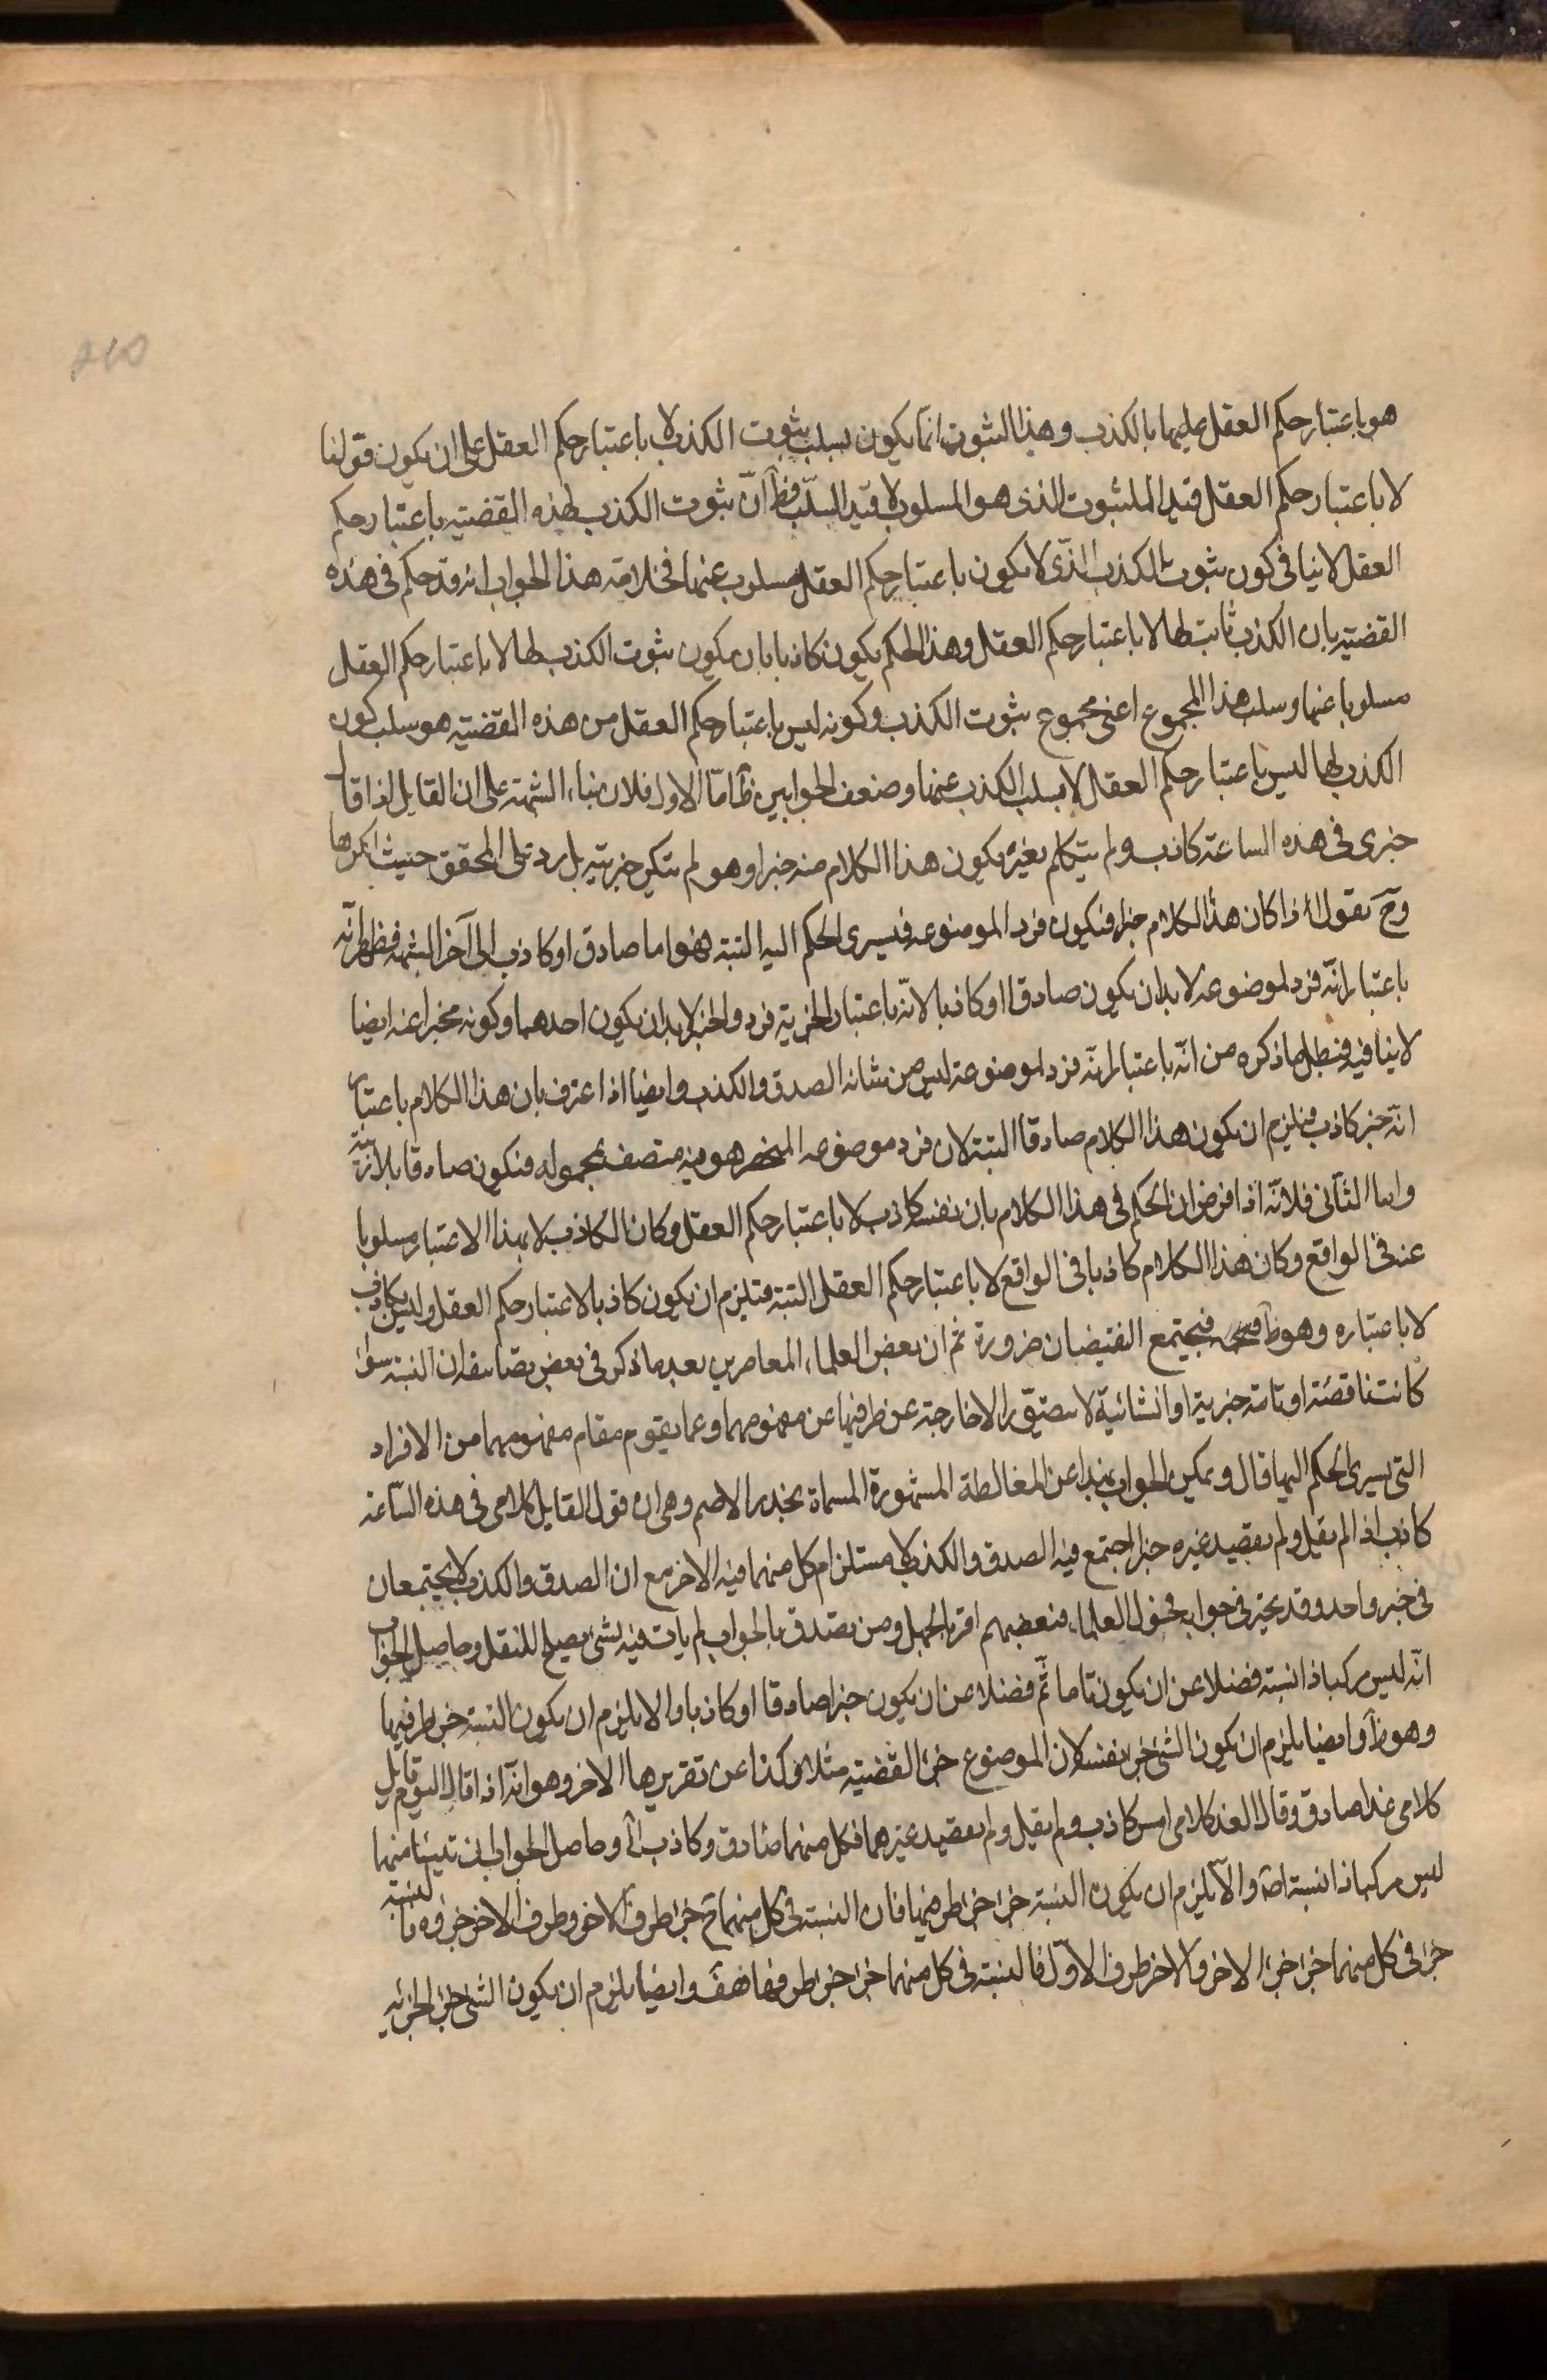 هو باعتبار حكم العقل عليها بالكذب وهذا الثبوت انما يكون بسلب ثبوت الكذب لا باعتبار حكم العقل على ان يكون قولنا
لا باعتبار حكم العقل قيدا للثبوت الذى هو المسلوب لا قيد السلب فظ انّ ثبوت الكذب لهذه القضية باعتبار حكم
العقل لا ينافى كون ثبوت الكذب الذى لا يكون باعتبار حكم العقل مسلوب عنها فخلاصة هذا الجواب انه قد حكم فى هذه
القضية بان الكذب ثابت لها لا باعتبار حكم العقل وهذا الحكم يكون كاذبا بان يكون ثبوت الكذب لها لا باعتبار حكم العقل
مسلوبا عنها وسلب هذا المجموع اعنى مجموع ثبوت الكذب وكونه ليس باعتبار حكم العقل من هذه القضية هو سلب كون
الكذب لها ليس باعتبار حكم العقل لا بسلب الكذب عنها وضعف الجوابين ظ امّا الاول فلان بناء الشبهة على ان القايل اذا قال
خبرى فى هذه الساعة كاذب ولم يتكلم بغيره يكون هذا الكلام منه خبرا وهو لم ينكر خبريته بل رد على المحقق حيث انكرها
وح نقول اذا كان هذا الكلام خبرا فيكون فردا لموضوعه فيسرى الحكم اليه البتة فهو اما صادق او كاذب الى آخر الشبهة فظهر انّه
باعتبار انّه فرد لموضوعه لا بد ان يكون صادقا او كاذبا لانّه باعتبار الخبرية فرد والخبر لا بد ان يكون احدهما وكونه مخبرا عنه ايضا
لا ينافيه فبطل ما ذكره من انّه باعتبار انّه فرد لموضوعه ليس من شانه الصدق والكذب وايضا اذا اعترف بان هذا الكلام باعتبار
انّه خبر كاذب فيلزم ان يكون هذا الكلام صادقا البتة لان فرد موضوعه المنحصر هو فيه متصف بمحموله فيكون صادقا بلا مرية
واما الثانى فلانّه اذا فرض ان الحكم فى هذا الكلام بان نفسه كاذب لا باعتبار حكم العقل وكان الكاذب لا بهذا الاعتبار مسلوبا
عنه فى الواقع وكان هذا الكلام كاذبا فى الواقع لا باعتبار حكم العقل البتة فيلزم ان يكون كاذبا لا باعتبار حكم العقل وليس بكاذب
لا باعتباره وهو ظ فيجتمع النقيضان ضرورة ثم ان بعض العلماء المعاصرين بعد ما ذكر فى بعض تصانيفه ان النسبة سواء
كانت ناقصة او تامة خبرية او انشائية لا يتصور الا خارجة عن طرفيها عن مفهومهما وعما يقوم مقام مفهومهما من الافراد
التى يسرى الحكم اليها قال ويمكن الجواب بهذا عن المغالطة المشهورة المسماة بجذر الاصم وهى ان قول القايل كلامى فى هذه الساعة
كاذب اذا لم يقل ولم يقصد غيره خبر اجتمع فيه الصدق والكذب لاستلزام كل منهما فيه الاخر مع ان الصدق والكذب لا يجتمعان
فى خبر واحد وقد تحير فى جوابه فحول العلماء فبعضهم اقر بالجهل ومن تصدق بالجواب لم يات فيه بشئ يصلح للنقل وحاصل الجواب
انّه ليس مركبا ذا نسبة فضلا عن ان يكون تاما ثم فضلا عن ان يكون خبرا صادقا او كاذبا والا يلزم ان يكون النسبة جزء طرفيها
وهو ظ وايضا يلزم ان يكون الشئ جزء نفسه لان الموضوع جزء القضية مثلا وكذا عن تقريرها الاخر وهو انّه اذا قال اليوم قايل
كلامى غدا صادق وقال الغد كلامى امس كاذب ولم يقل ولم يقصد غيرهما فكل منهما صادق وكاذب آه وحاصل الجواب ان شيئا منهما
ليس مركبا ذا نسبة اصلا والا يلزم ان يكون النسبة جزء جزء طرفيها فان النسبة فى كل منهما ح جزء طرف الاخر وطرف الاخر جزؤه فالنسبة
جزء فى كل منهما جزء جزء الاخر والاخر طرف الاول فالنسبة فى كل منهما جزء جزء طرفها هف وايضا يلزم ان يكون الشئ جزء الجزئه